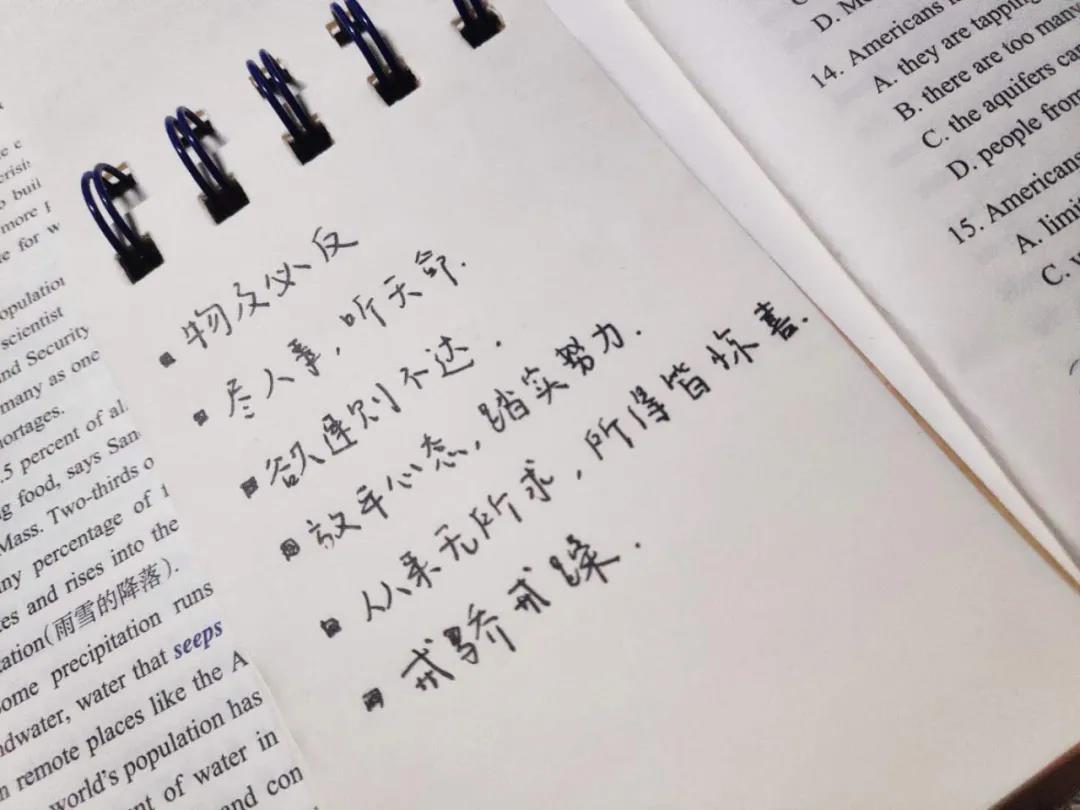 物及必反
尽人事，听天命.
欲速则不达.
放平心态，踏实努力.
从来无所求，所得皆惊喜.
戒骄戒躁.
opulation
scientist
nd Security
many as one
ortages.
.5 percent of al
g food, says San
Mass. Two-thirds o
ny percentage of
es and rises into the
ation(雨雪的降落).
ome precipitation runs
ndwater, water that seeps
n remote places like the A
world's population has
nt of water in
and con
14. Americans
A. they are tapping
B. there are too many
C. the aquifers ca
D. people from
15. Americans
A. limi
C.